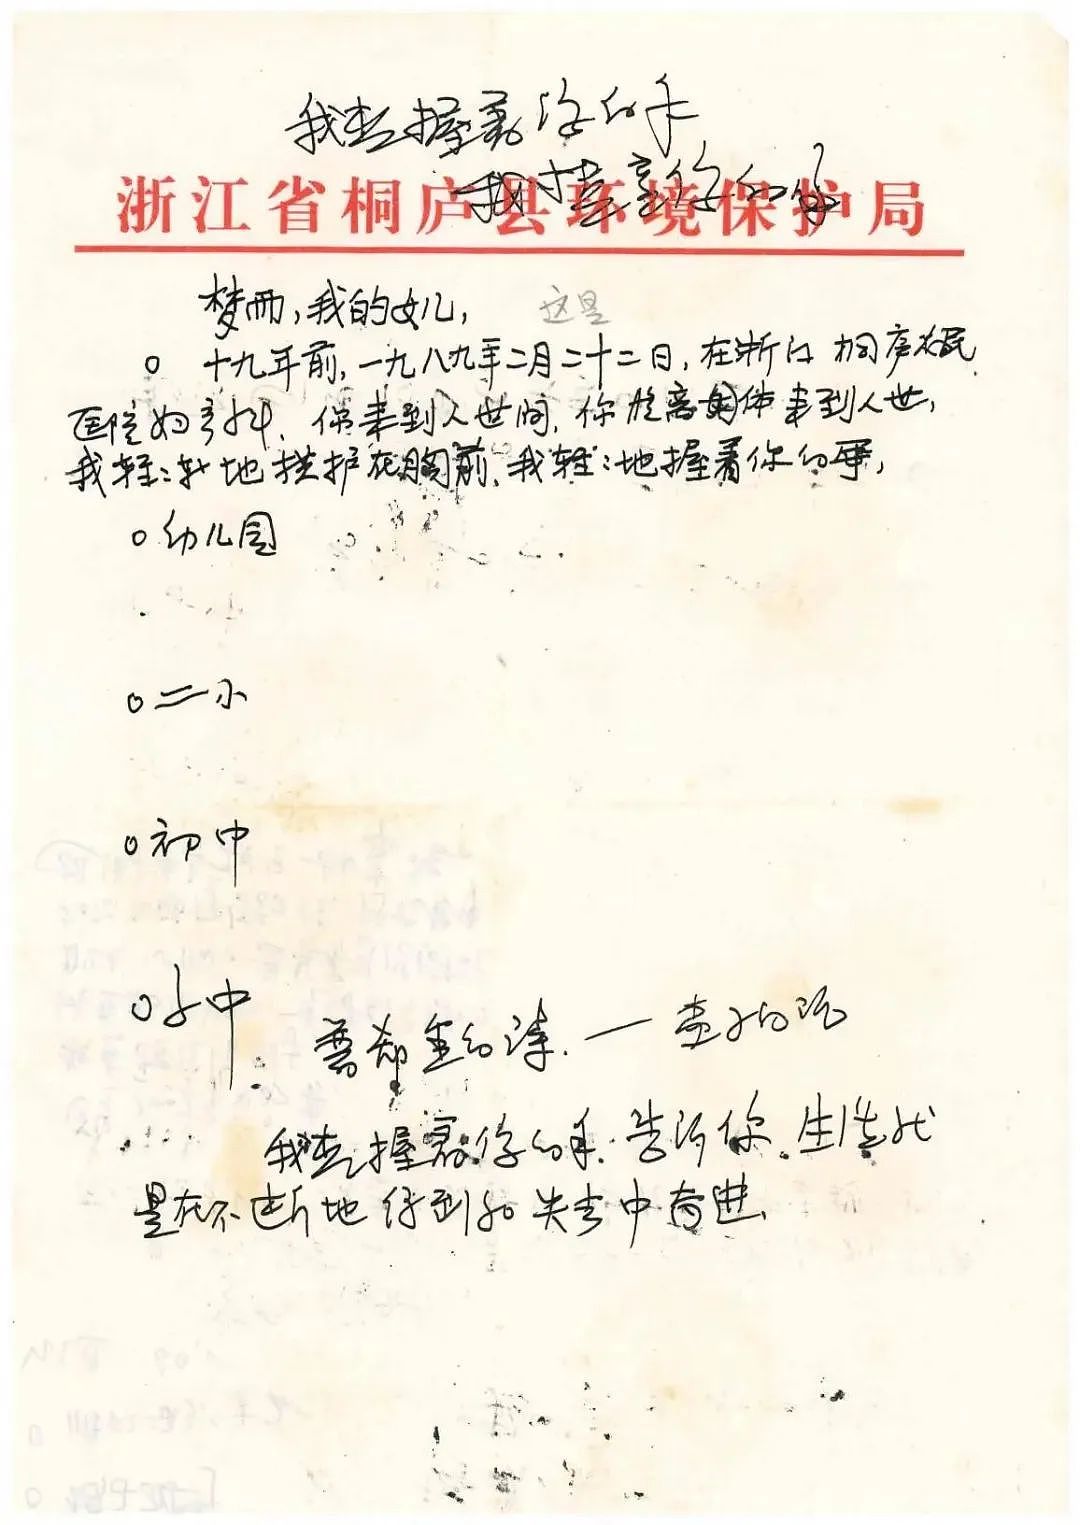 我在握着你的手
我在握着你的手
浙江省桐庐县环境保护局
梦雨,我的女儿,
这是
○ 十九年前,一九八九年二月二十二日,在浙江桐庐农民
医院妇产科,你来到人世间,你脱离母体来到人世,
我轻轻地拱护在胸前,我轻轻地握着你的手,
○幼儿园
○二小
○初中
○高中
我在握着你的手,告诉你,生活就
是在不断地得到和失去中前进,